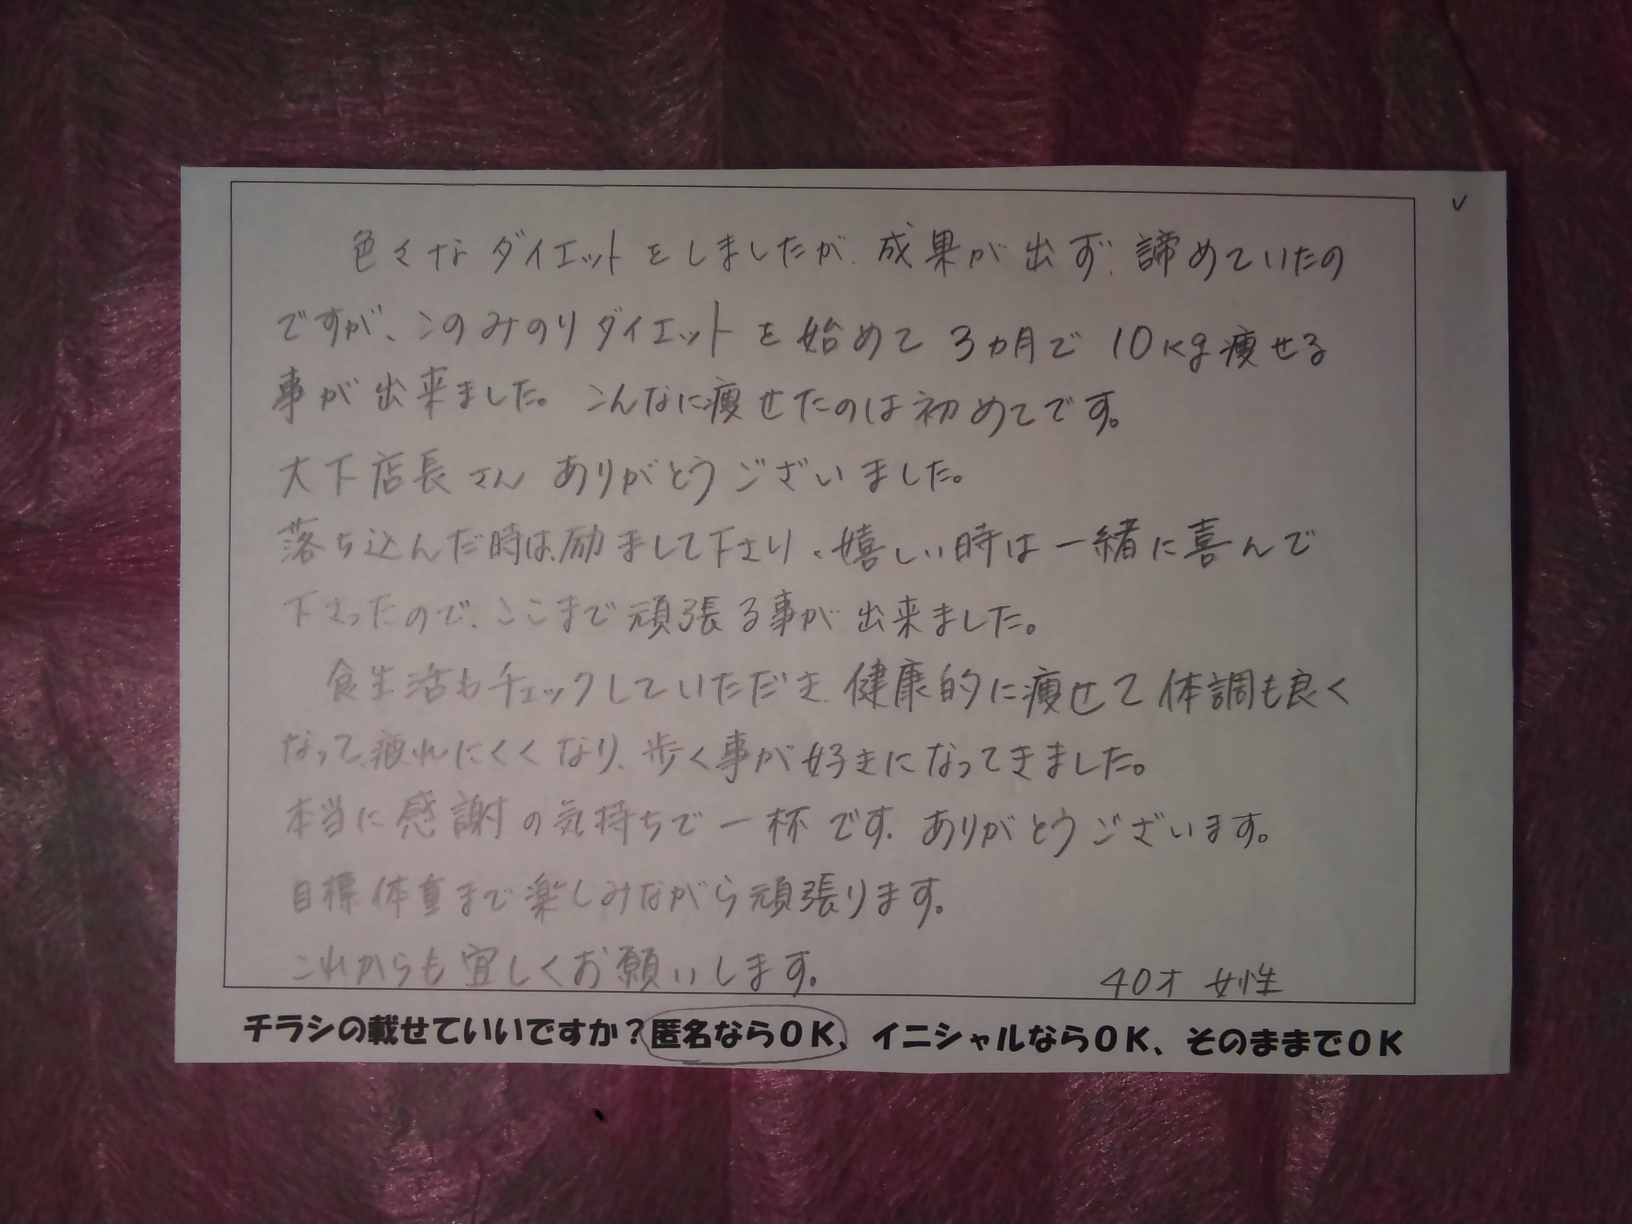 色々なダイエットをしましたが、成果が出ず、諦めていたの
ですが、このみのりダイエットを始めて3ヵ月で10kg痩せる
事が出来ました。こんなに痩せたのは初めてです。
大下店長さん ありがとうございました。
落ち込んだ時は、励まして下さり、嬉しい時は一緒に喜んで
下さったので、ここまで頑張る事が出来ました。
食生活もチェックしていただき、健康的に痩せて体調も良く
なって、疲れにくくなり、歩く事が好きになってきました。
本当に感謝の気持ちで一杯です。ありがとうございます。
目標体重まで楽しみながら頑張ります。
これからも宜しくお願いします。 40才 女性
チラシの載せていいですか？匿名ならＯＫ、イニシャルならＯＫ、そのままでＯＫ